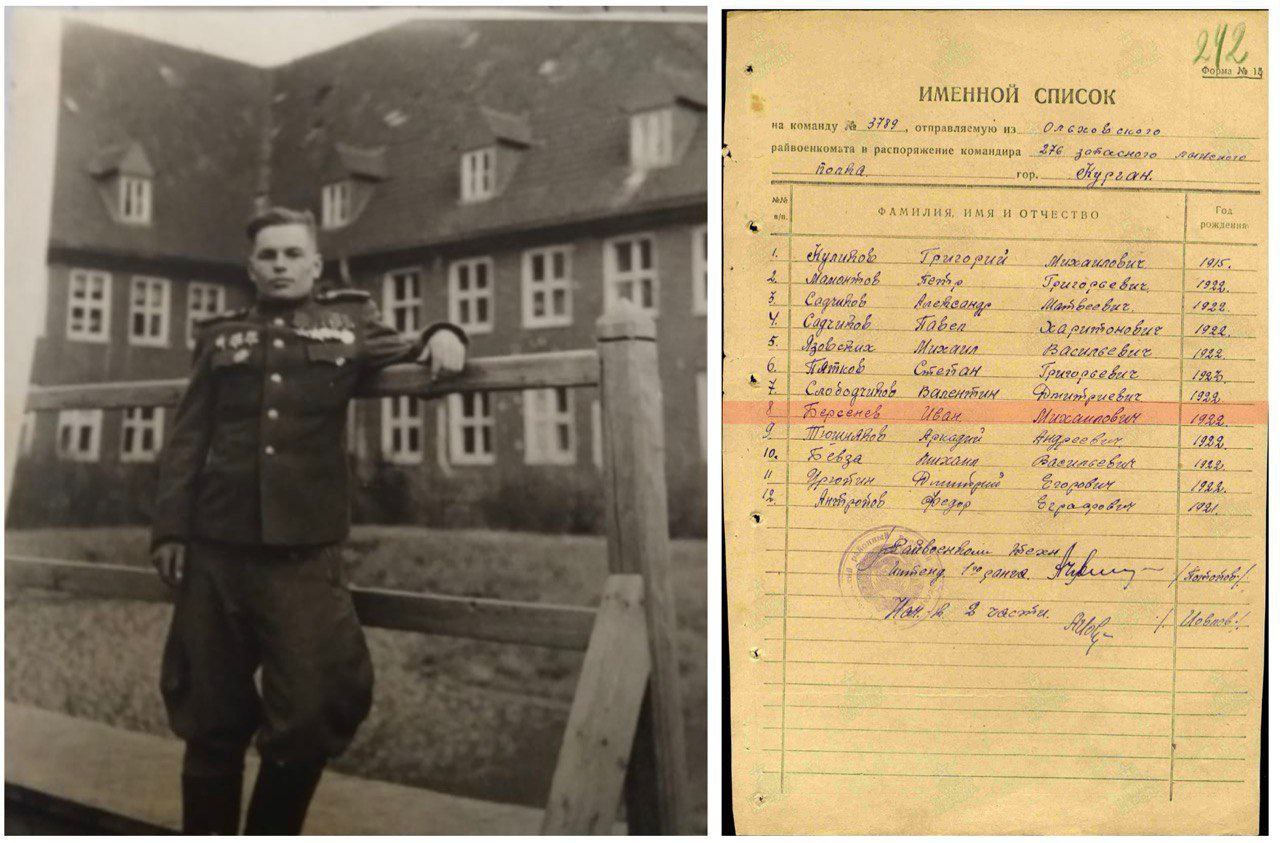 242
Форма № 15
ИМЕННОЙ СПИСОК
на команду № 3789, отправляемую из Ольховского
райвоенкомата в распоряжение командира 276 запасного лыжного
полка. гор. Курган.
№№ п/п. ФАМИЛИЯ, ИМЯ И ОТЧЕСТВО Год рождения
1. Куликов Григорий Михайлович 1915.
2. Мамонтов Петр Григорьевич 1922.
3. Садчиков Александр Матвеевич 1922.
4. Садчиков Павел Харитонович 1922.
5. Язовских Михаил Васильевич 1922.
6. Пятков Степан Григорьевич
7. Слободчиков Валентин Дмитриевич 1922
8 Берсенев Иван Михайлович 1922
9. Тюшняков Аркадий Андреевич 1922
10. Бевза Михаил Васильевич 1922.
11 Урютин Дмитрий Егорович 1922.
12. Антропов Федор Еграфович 1921.
Райвоенком техн
интенд. 1го ранга
Нач. 2 части.